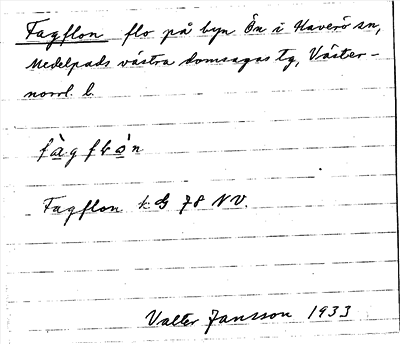 Fagflon flo på byn Ön i Haverö sn,
Medelpads västra domsagas tg, Väster-
norrl. l.
Fagflon k. G 78 NV.
Valter Jansson 1933